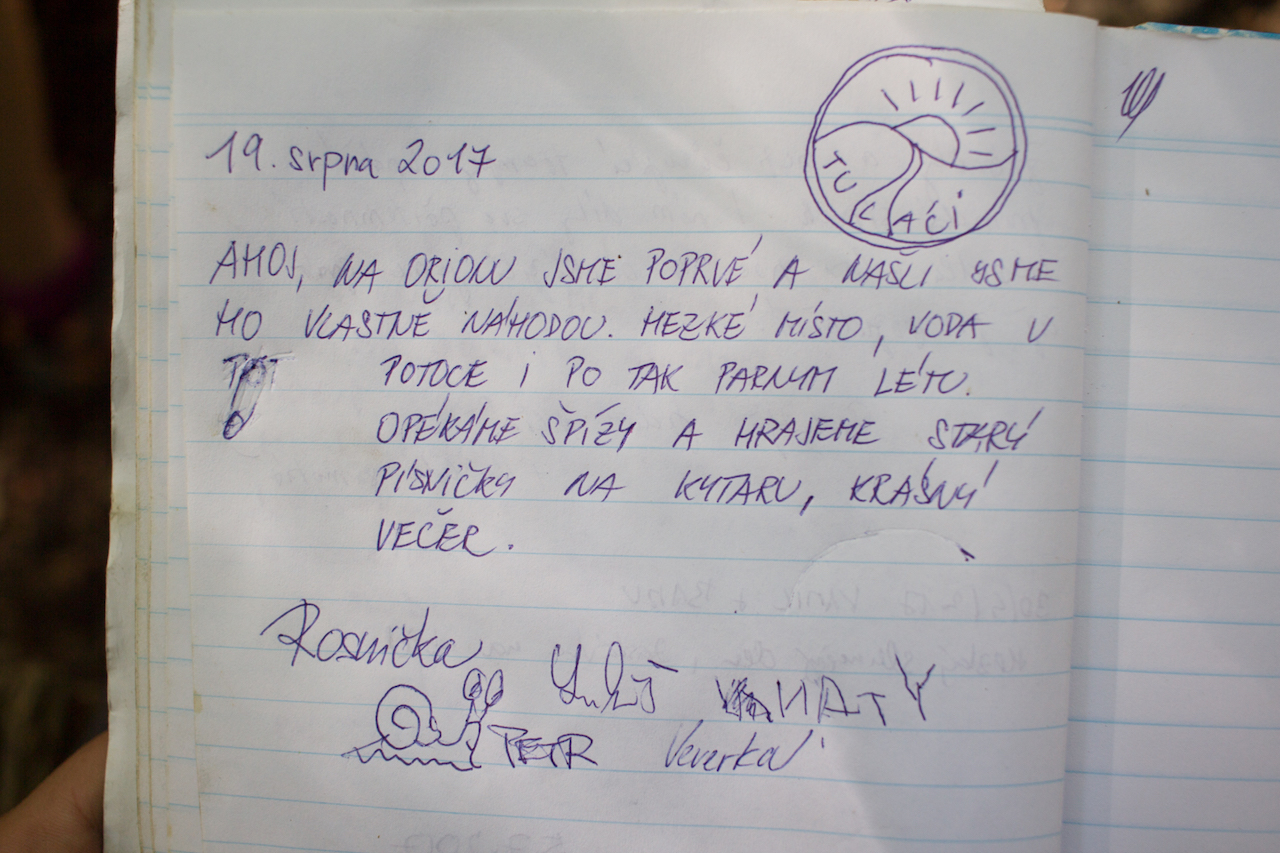 TULÁCI
19. srpna 2017
AHOJ, NA ORIONU JSME POPRVÉ A NAŠLI JSME
HO VLASTNĚ NÁHODOU. HEZKÉ MÍSTO, VODA V
POTOCE I PO TAK PARNYM LÉTU.
OPÉKÁME ŠPÍZY A HRAJEME STARÝ
PÍSNIČKY NA KYTARU, KRÁSNÝ
VEČER.
Rosnička
PETR Veverka